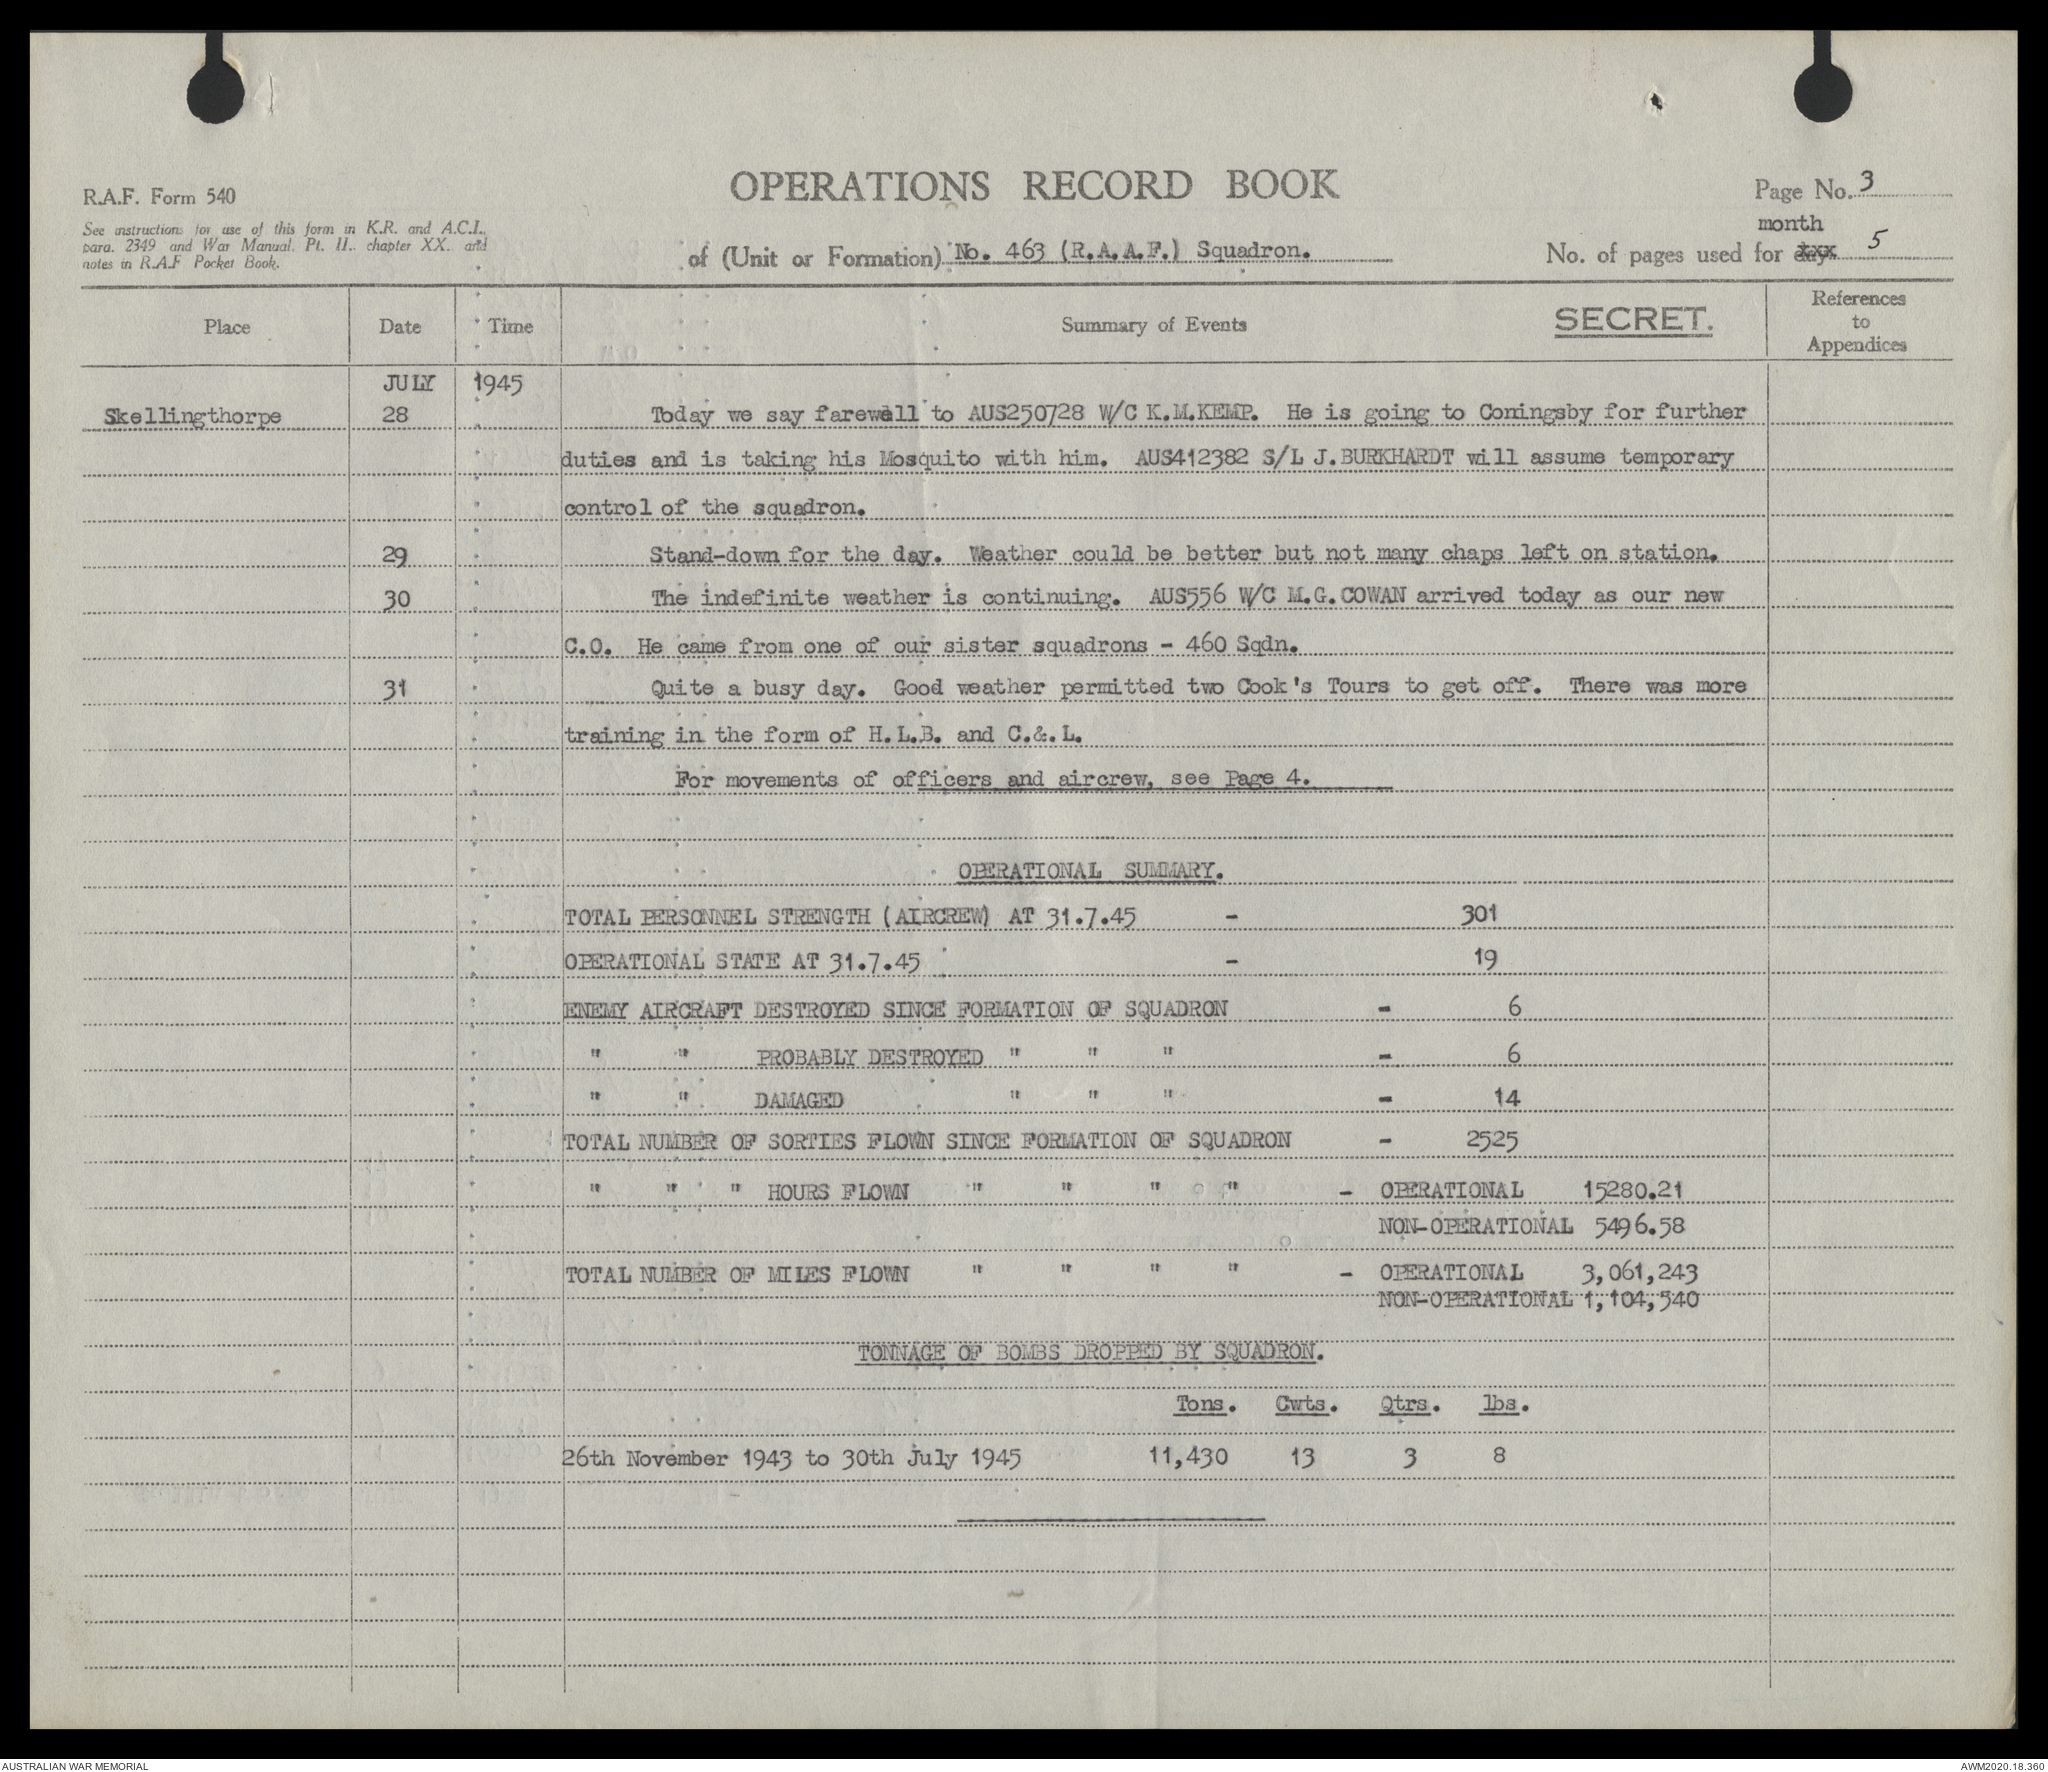 R.A.F. Form 540
See instructions for use of this form in K.R. and A.C.I.,
para. 2349 and War Manual, Pt. II., chapter XX., and
notes in R.A.F Pocket Book.
OPERATIONS RECORD BOOK
of (Unit or Formation) No. 463 (R.A.A.F.) Squadron.
Page No. 3
month
No. of pages used for day 5
Place Date Time Summary of Events SECRET. References to Appendices
JULY 1945
Skellingthorpe 28 Today we say farewell to AUS250728 W/C K.M.KEMP. He is going to Coningsby for further
duties and is taking his Mosquito with him. AUS412382 S/L J.BURKHARDT will assume temporary
control of the squadron.
29 Stand-down for the day. Weather could be better but not many chaps left on station.
30 The indefinite weather is continuing. AUS556 W/C M.G.COWAN arrived today as our new
C.O. He came from one of our sister squadrons - 460 Sqdn.
31 Quite a busy day. Good weather permitted two Cook's Tours to get off. There was more
training in the form of H.L.B. and C.&.L.
For movements of officers and aircrew, see Page 4.
OPERATIONAL SUMMARY.
TOTAL PERSONNEL STRENGTH (AIRCREW) AT 31.7.45 - 301
OPERATIONAL STATE AT 31.7.45 - 19
ENEMY AIRCRAFT DESTROYED SINCE FORMATION OF SQUADRON - 6
" " PROBABLY DESTROYED " " " - 6
" " DAMAGED " " " - 14
TOTAL NUMBER OF SORTIES FLOWN SINCE FORMATION OF SQUADRON - 2525
" " " HOURS FLOWN " " " " - OPERATIONAL 15280.21
NON-OPERATIONAL 5496.58
TOTAL NUMBER OF MILES FLOWN " " " " - OPERATIONAL 3,061,243
NON-OPERATIONAL 1,104,540
TONNAGE OF BOMBS DROPPED BY SQUADRON.
Tons. Cwts. Qtrs. lbs.
26th November 1943 to 30th July 1945 11,430 13 3 8
AUSTRALIAN WAR MEMORIAL
AWM2020.18.360